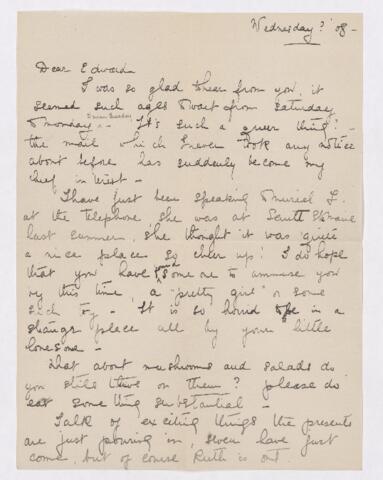 Wednesday ? '08 -
Dear Edward
I was so glad to hear from you, it
seemed such ages to wait from Saturday
to Monday. - It's such a queer thing -
the mail which I never took any notice
about before has suddenly become my
chief interest -
I have just been speaking to Muriel L.
at the telephone, she was at
last summer, she thought it was "quite
a nice place" so cheer up! I do hope
that you have found some one to amuse you
by this time, a "pretty girl" or some
such toy - It is so horrid to be in a
strange place all by your little
lonesome -
What about mushrooms and salads do
you still thrive on them? please do
eat something substantial -
Talk of exciting things the presents
are just pouring in, seven have just
come, but of course Ruth is out.